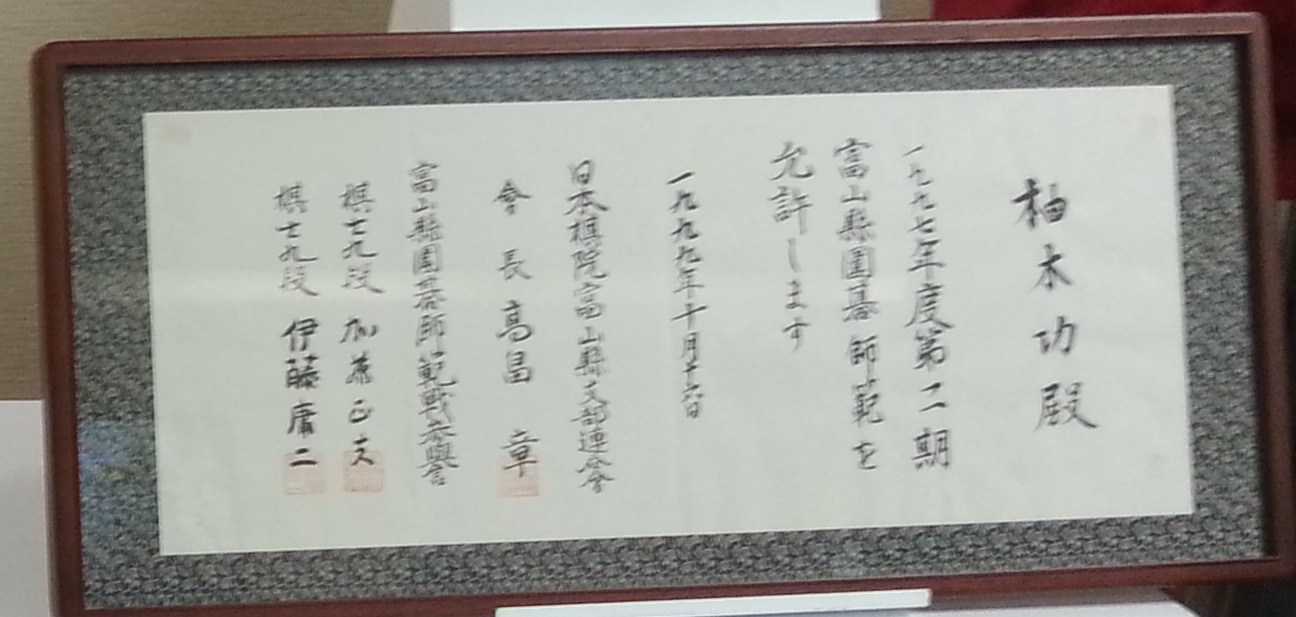 柚木功殿
一九九七年度第二期
富山縣囲碁師範を
允許します
一九九九年十月十六日
日本棋院富山縣支部連合會
會長 高畠 章
富山縣囲碁師範戦
棋士九段 加藤正夫
棋士九段 伊藤庸二